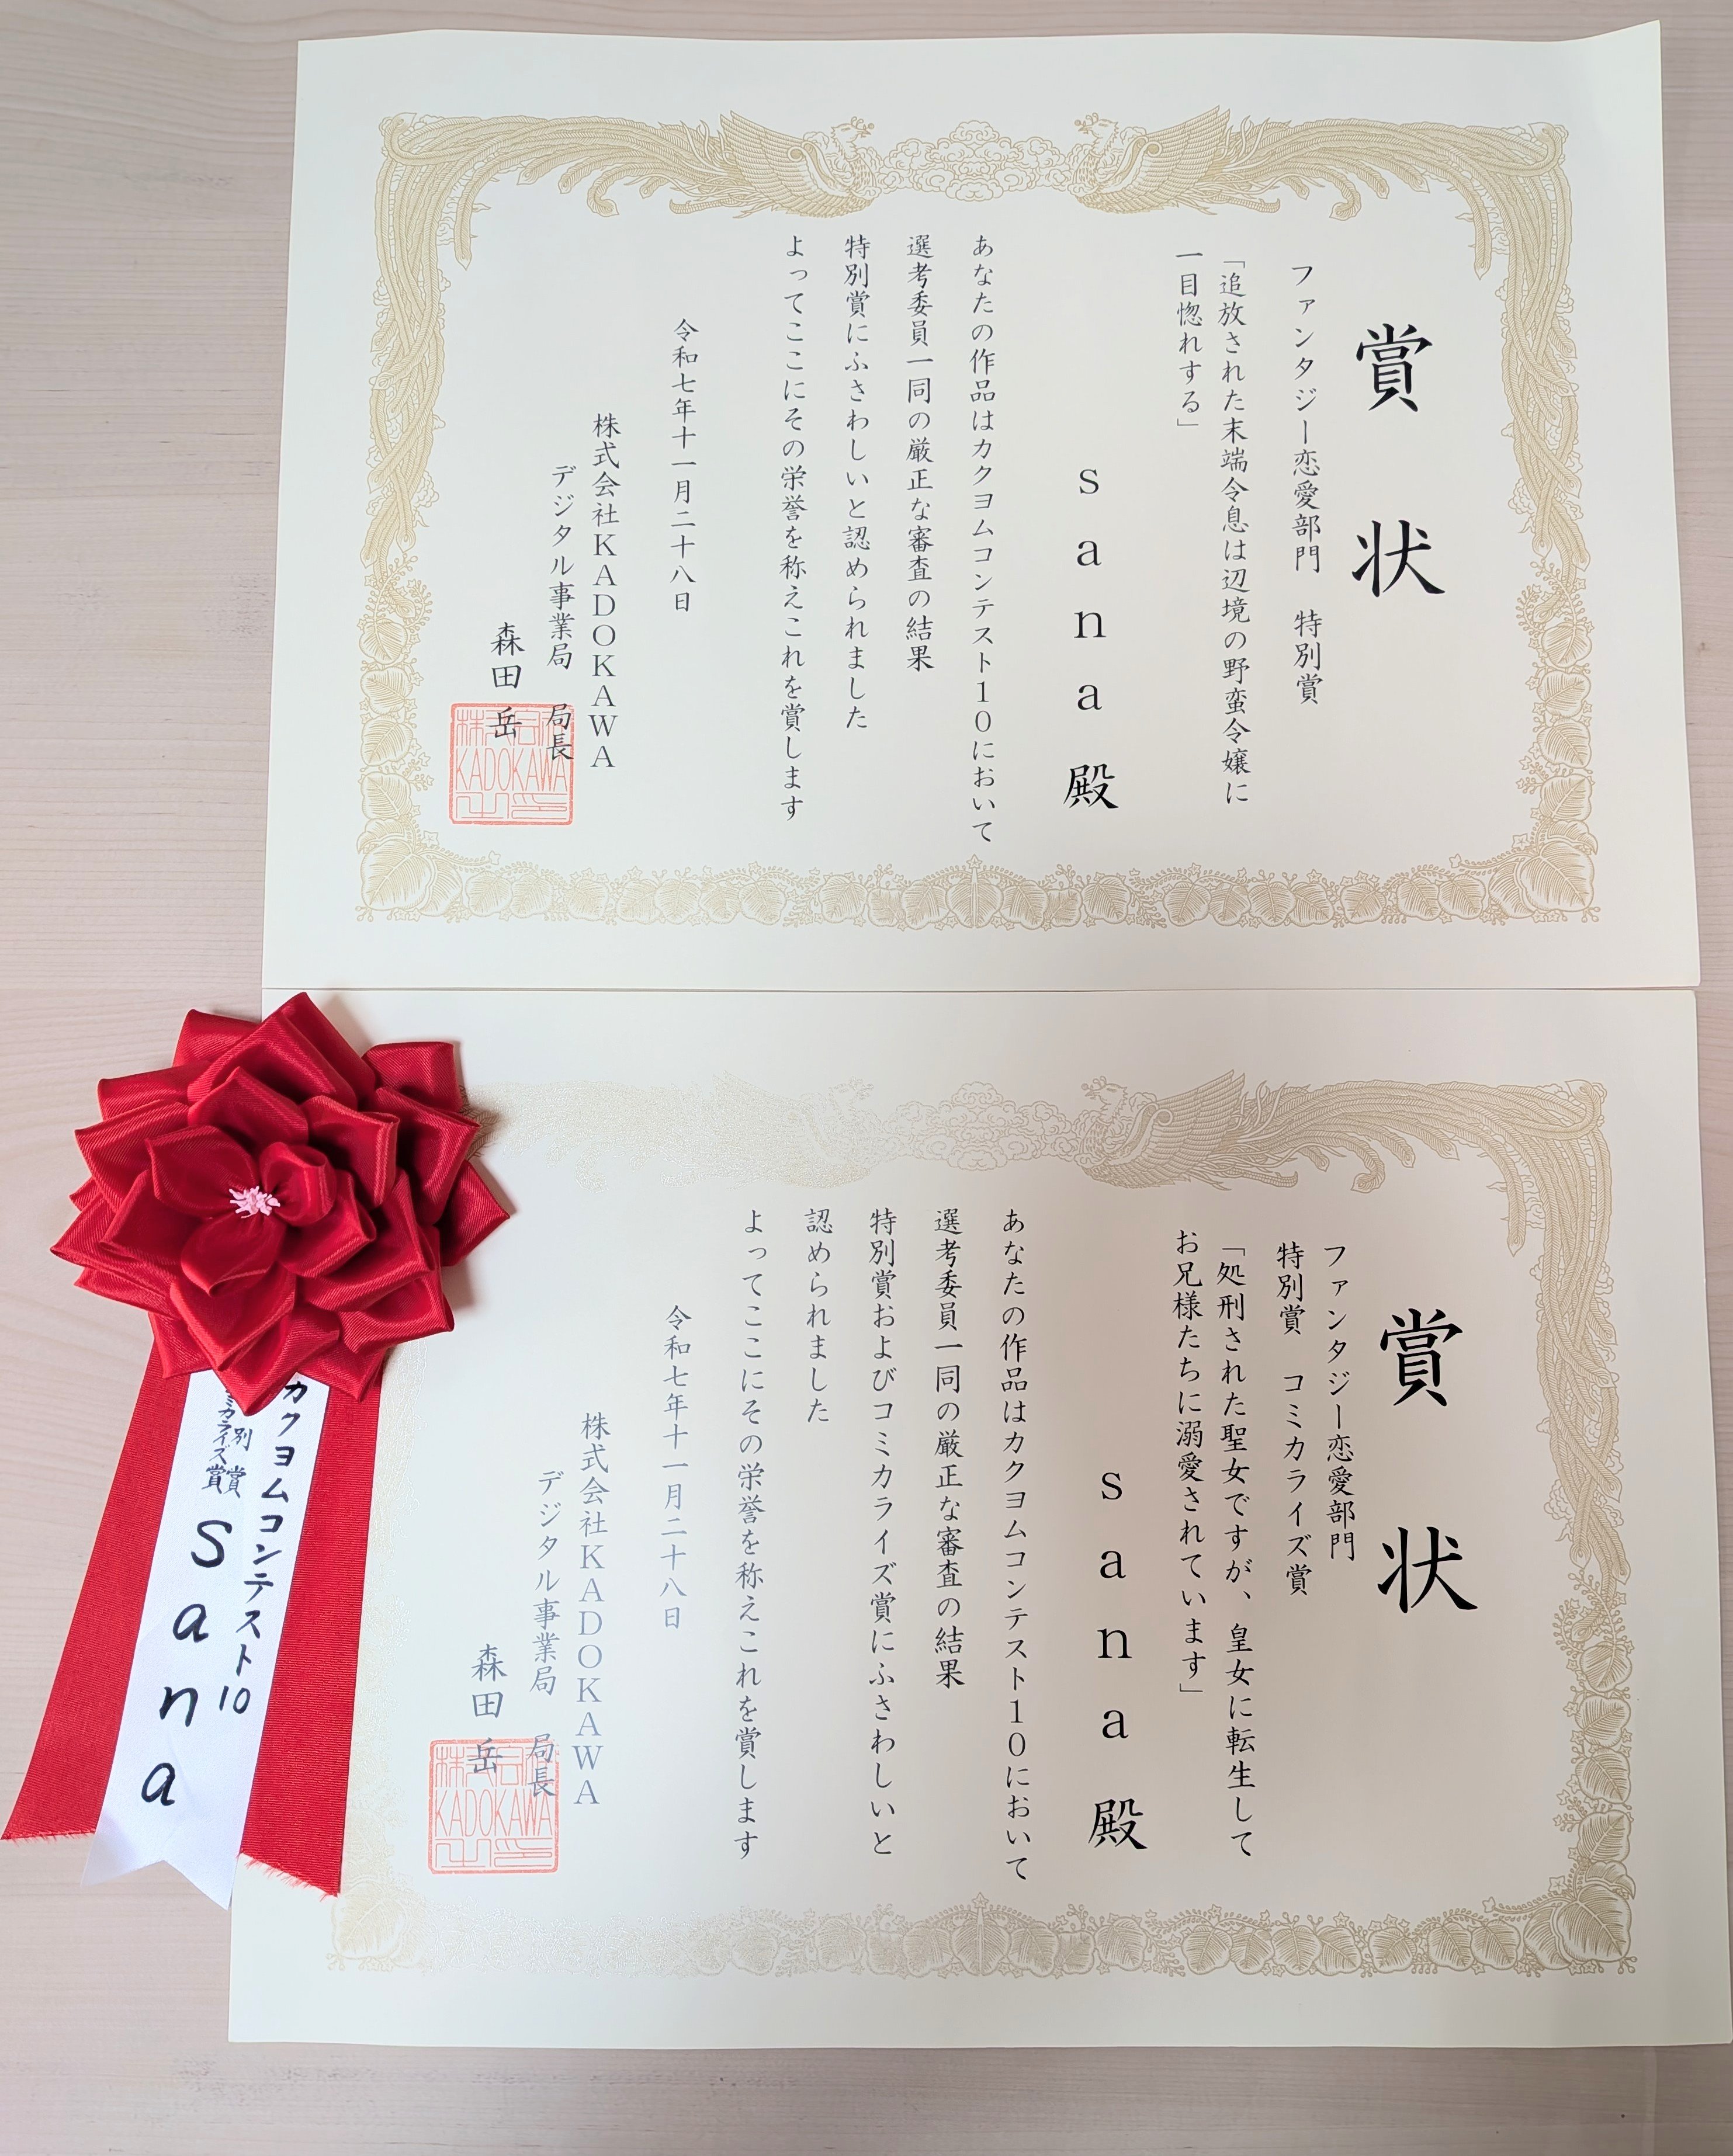 賞状
ファンタジー恋愛部門 特別賞
「追放された末端令息は辺境の野蛮令嬢に
一目惚れする」
sana殿
あなたの作品はカクヨムコンテスト10において
選考委員一同の厳正な審査の結果
特別賞にふさわしいと認められました
よってここにその栄誉を称えこれを賞します
令和七年十一月二十八日
株式会社KADOKAWA
デジタル事業局 局長
森田 岳
KADOKAWA
賞状
ファンタジー恋愛部門
特別賞 コミカライズ賞
「処刑された聖女ですが、皇女に転生して
お兄様たちに溺愛されています」
sana殿
あなたの作品はカクヨムコンテスト10において
選考委員一同の厳正な審査の結果
特別賞およびコミカライズ賞にふさわしいと
認められました
よってここにその栄誉を称えこれを賞します
令和七年十一月二十八日
株式会社KADOKAWA
デジタル事業局 局長
森田 岳
KADOKAWA
カクヨムコンテスト10
別賞
ミカライズ賞
sana